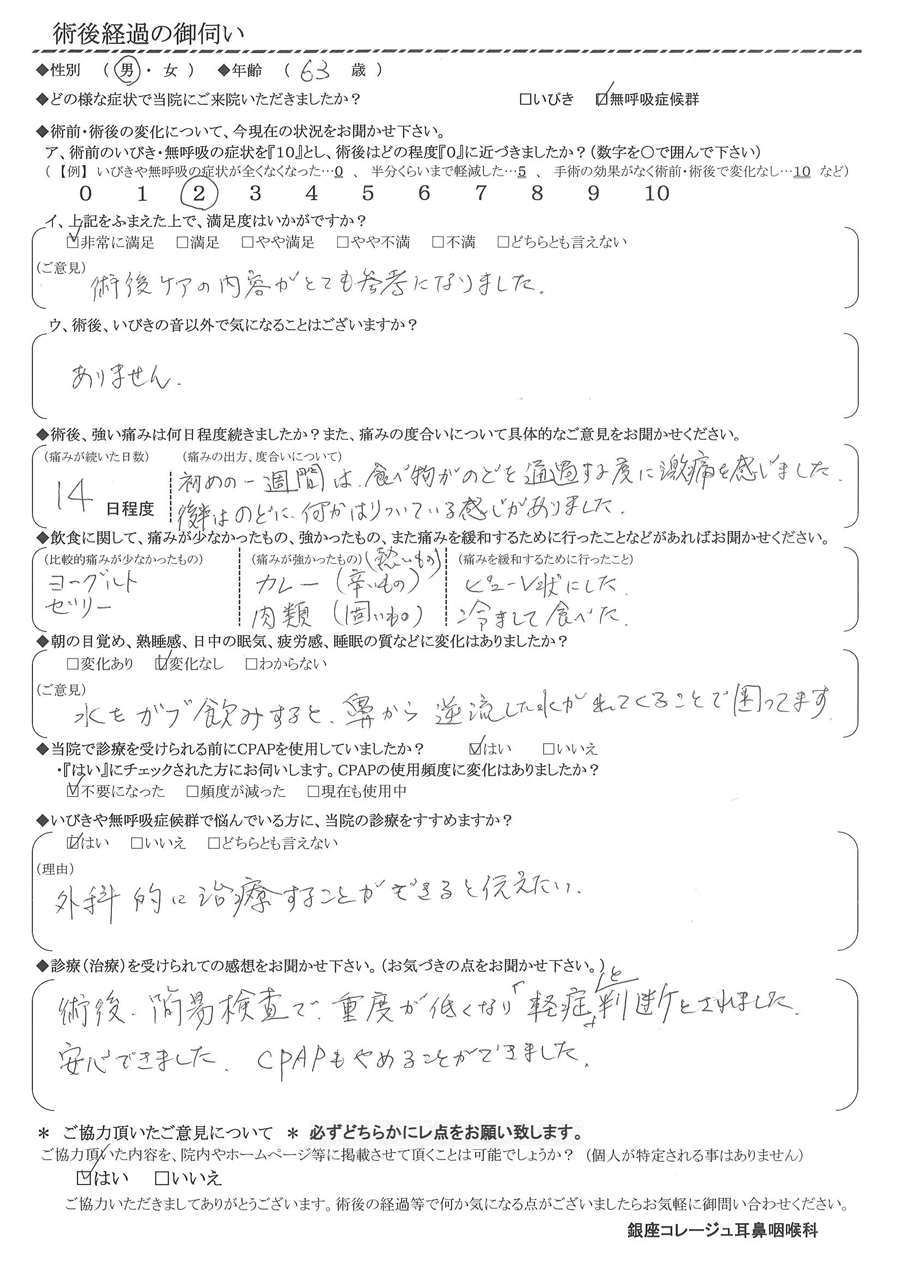 術後経過の御伺い
◆性別 （ 男 ・ 女 ） ◆年齢 （ 63 歳 ）
◆どの様な症状で当院にご来院いただきましたか？ □いびき ☑無呼吸症候群
◆術前・術後の変化について、今現在の状況をお聞かせ下さい。
ア、術前のいびき・無呼吸の症状を『10』とし、術後はどの程度『0』に近づきましたか？（数字を〇で囲んで下さい）
（ 【例】 いびきや無呼吸の症状が全くなくなった…0 、 半分くらいまで軽減した…5 、 手術の効果がなく術前・術後で変化なし…10 など）
0 1 2 3 4 5 6 7 8 9 10
イ、上記をふまえた上で、満足度はいかがですか？
☑非常に満足 □満足 □やや満足 □やや不満 □不満 □どちらとも言えない
（ご意見）
術後ケアの内容がとても参考になりました.
ウ、術後、いびきの音以外で気になることはございますか？
ありません.
◆術後、強い痛みは何日程度続きましたか？また、痛みの度合いについて具体的なご意見をお聞かせください。
（痛みが続いた日数） （痛みの出方、度合いについて）
初めの一週間は、食べ物がのどを通過する度に激痛を感じました.
14 日程度 後半はのどに何かはりついている感じがありました.
◆飲食に関して、痛みが少なかったもの、強かったもの、また痛みを緩和するために行ったことなどがあればお聞かせください。
（比較的痛みが少なかったもの） （痛みが強かったもの）（熱いもの） （痛みを緩和するために行ったこと）
ヨーグルト カレー（辛いもの） ピューレ状にした.
ゼリー 肉類 （固いもの） 冷まして食べた.
◆朝の目覚め、熟睡感、日中の眠気、疲労感、睡眠の質などに変化はありましたか？
□変化あり ☑変化なし □わからない
（ご意見）
水をガブ飲みすると、鼻から逆流した水がもれてくることで困ってます.
◆当院で診療を受けられる前にCPAPを使用していましたか？ ☑はい □いいえ
・『はい』にチェックされた方にお伺いします。CPAPの使用頻度に変化はありましたか？
☑不要になった □頻度が減った □現在も使用中
◆いびきや無呼吸症候群で悩んでいる方に、当院の診療をすすめますか？
☑はい □いいえ □どちらとも言えない
（理由）
外科的に治療することができると伝えたい.
◆診療（治療）を受けられての感想をお聞かせ下さい。（お気づきの点をお聞かせ下さい。）
術後、簡易検査で、重度が低くなり「軽症」と判断ケとされました.
安心できました. CPAPもやめることができました.
＊ ご協力頂いたご意見について ＊ 必ずどちらかにレ点をお願い致します。
ご協力頂いた内容を、院内やホームページ等に掲載させて頂くことは可能でしょうか？ （個人が特定される事はありません）
☑はい □いいえ
ご協力いただきましてありがとうございます。術後の経過等で何か気になる点がございましたらお気軽に御問い合わせください。
銀座コレージュ耳鼻咽喉科